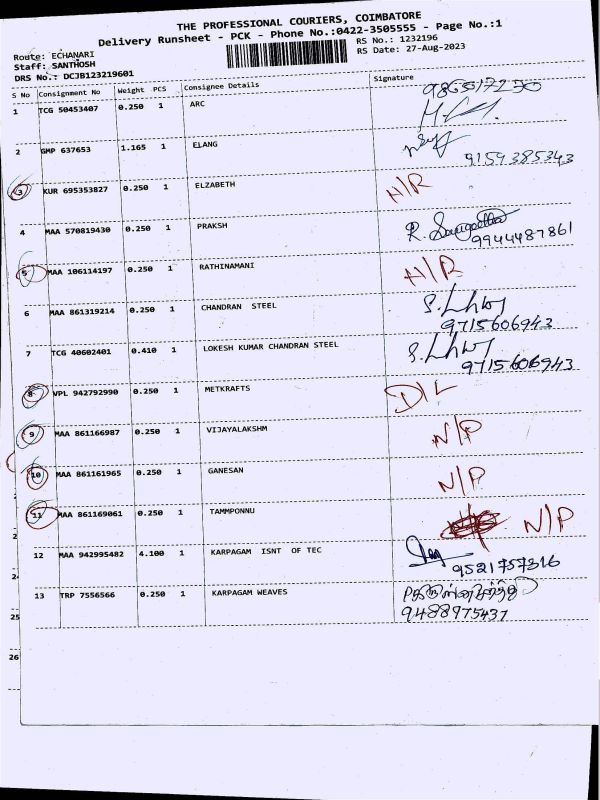 THE PROFESSIONAL COURIERS, COIMBATORE
Delivery Runsheet - PCK - Phone No.:0422-3505555 - Page No.:1
Route: ECHANARI
RS No.: 1232196
Staff: SANTHOSH
RS Date: 27-Aug-2023
DRS No.: DCJB123219601
S No Consignment No Weight PCS Consignee Details Signature
1 TCG 50453407 0.250 1 ARC
2 GMP 637653 1.165 1 ELANG 9159385343
3 KUR 695353827 0.250 1 ELZABETH N/R
4 MAA 570819430 0.250 1 PRAKSH 9944487861
5 MAA 106114197 0.250 1 RATHINAMANI N/R
6 MAA 861319214 0.250 1 CHANDRAN STEEL 9715606943
7 TCG 40602401 0.410 1 LOKESH KUMAR CHANDRAN STEEL 9715606943
8 VPL 942792990 0.250 1 METKRAFTS D/L
9 MAA 861166987 0.250 1 VIJAYALAKSHM N/P
10 MAA 861161965 0.250 1 GANESAN N/P
11 MAA 861169061 0.250 1 TAMMPONNU N/P
12 MAA 942995482 4.100 1 KARPAGAM ISNT OF TEC 9521757316
13 TRP 7556566 0.250 1 KARPAGAM WEAVES
9488975437
25
26